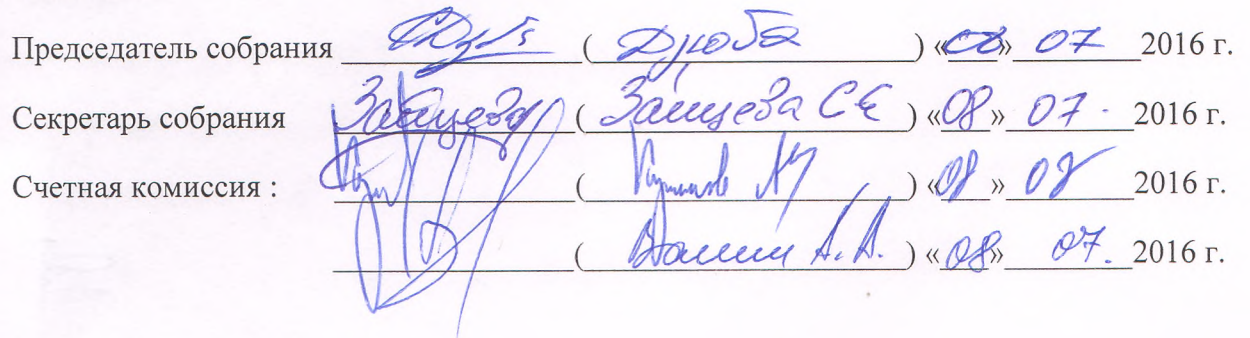 Председатель собрания ( Дзюба ) «08» 07 2016 г.
Секретарь собрания Зайцева ( Зайцева С Е ) «08» 07. 2016 г.
Счетная комиссия : ( ) «08» 07 2016 г.
( А. А. ) «08» 07. 2016 г.